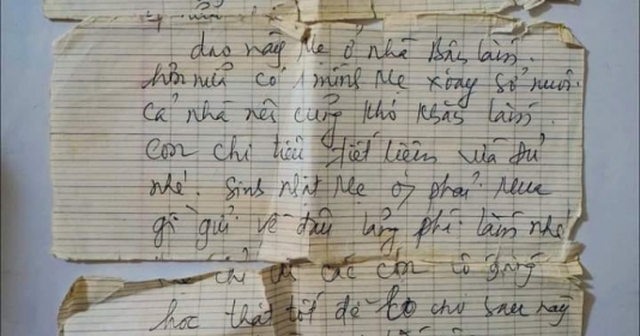 dạo này Mẹ ở nhà Bận lắm.
hơn nữa có 1 mình Mẹ xoay sở nuôi
Cả nhà nên cũng khó khăn lắm.
Con chi tiêu tiết kiệm vừa đủ
nhé. Sinh nhật Mẹ phải Mua
gì gửi về đâu lãng phí lắm nhé
các con cố gắng
học thật tốt để lo cho sau này